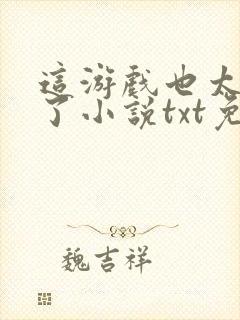 這游戲也太
了小說txt免
魏吉祥